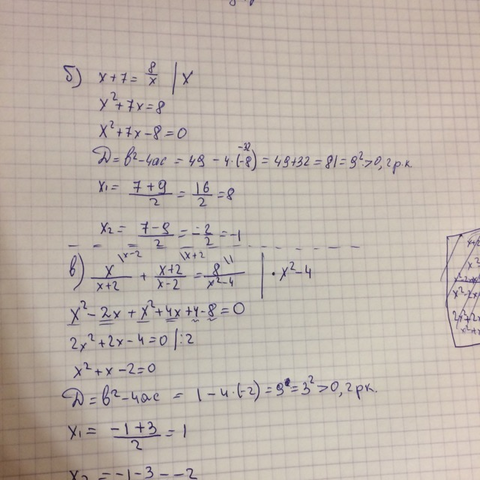 б) x+7 = 8/x | x
x²+7x=8
x²+7x-8=0
Д=в²-4ас = 49 - 4·(-8) = 49+32 = 81 = 9² > 0, 2 р.к
-32
x₁ = (7+9)/2 = 16/2 = 8
x₂ = (7-9)/2 = -2/2 = -1
в) x/(x+2) \x-2 + (x+2)/(x-2) \x+2 = 8/(x²-4) \1 | · x²-4
x²-2x+x²+4x+4-8=0
2x²+2x-4=0 |:2
x²+x-2=0
Д=в²-4ас = 1-4·(-2) = 9 = 3² > 0, 2 р.к.
x₁ = (-1+3)/2 = 1
x₂ = -1-3 = -2